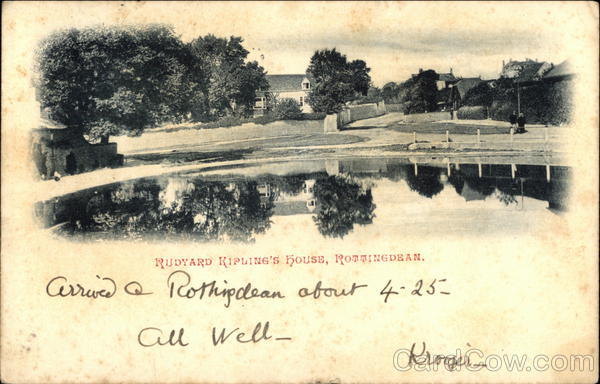 Rudyard Kipling's House, Rottingdean.
Arrived @ Rothingdean about 4-25-
All Well-
CardCow.com